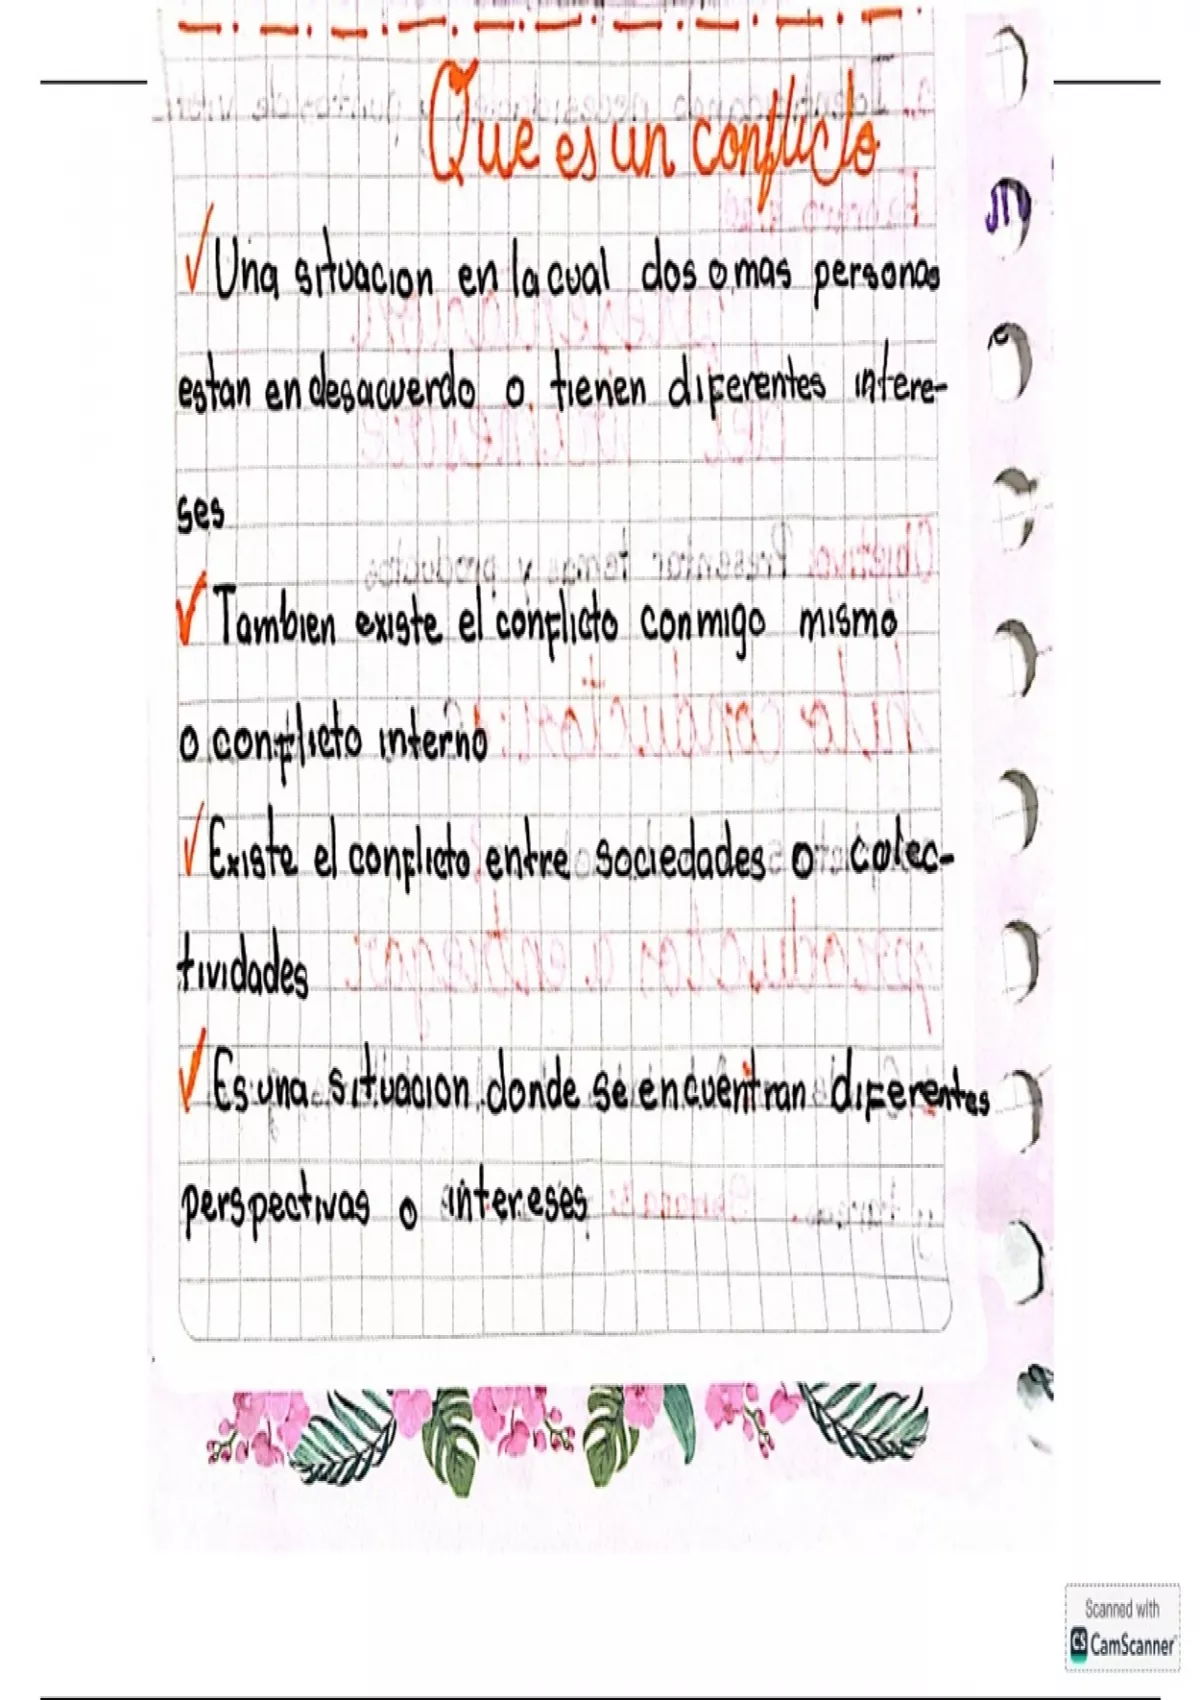 Que es un conflicto
Una situacion en la cual dos o mas personas
estan en desacuerdo o tienen diferentes intere-
ses
Tambien existe el conflicto conmigo mismo
o conflicto interno
Existe el conflicto entre sociedades o colec-
tividades
Es una situacion donde se encuentran diferentes
perspectivas o intereses
Scanned with
CS CamScanner